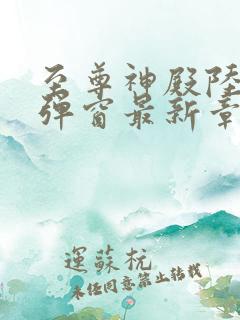 至尊神殿陆
弹窗最新章
運蘇杬
未经同意禁止转载